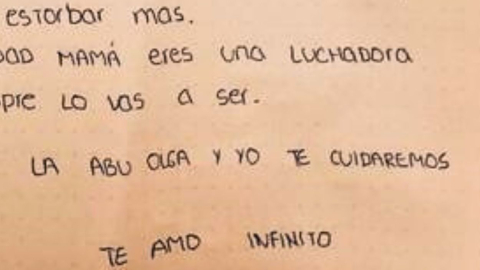 estorbar mas.
DAD MAMÁ eres una LUCHADORA
pre LO vas a ser.
LA ABU OLGA Y YO TE CUIDAREMOS
TE AMO INFINITO